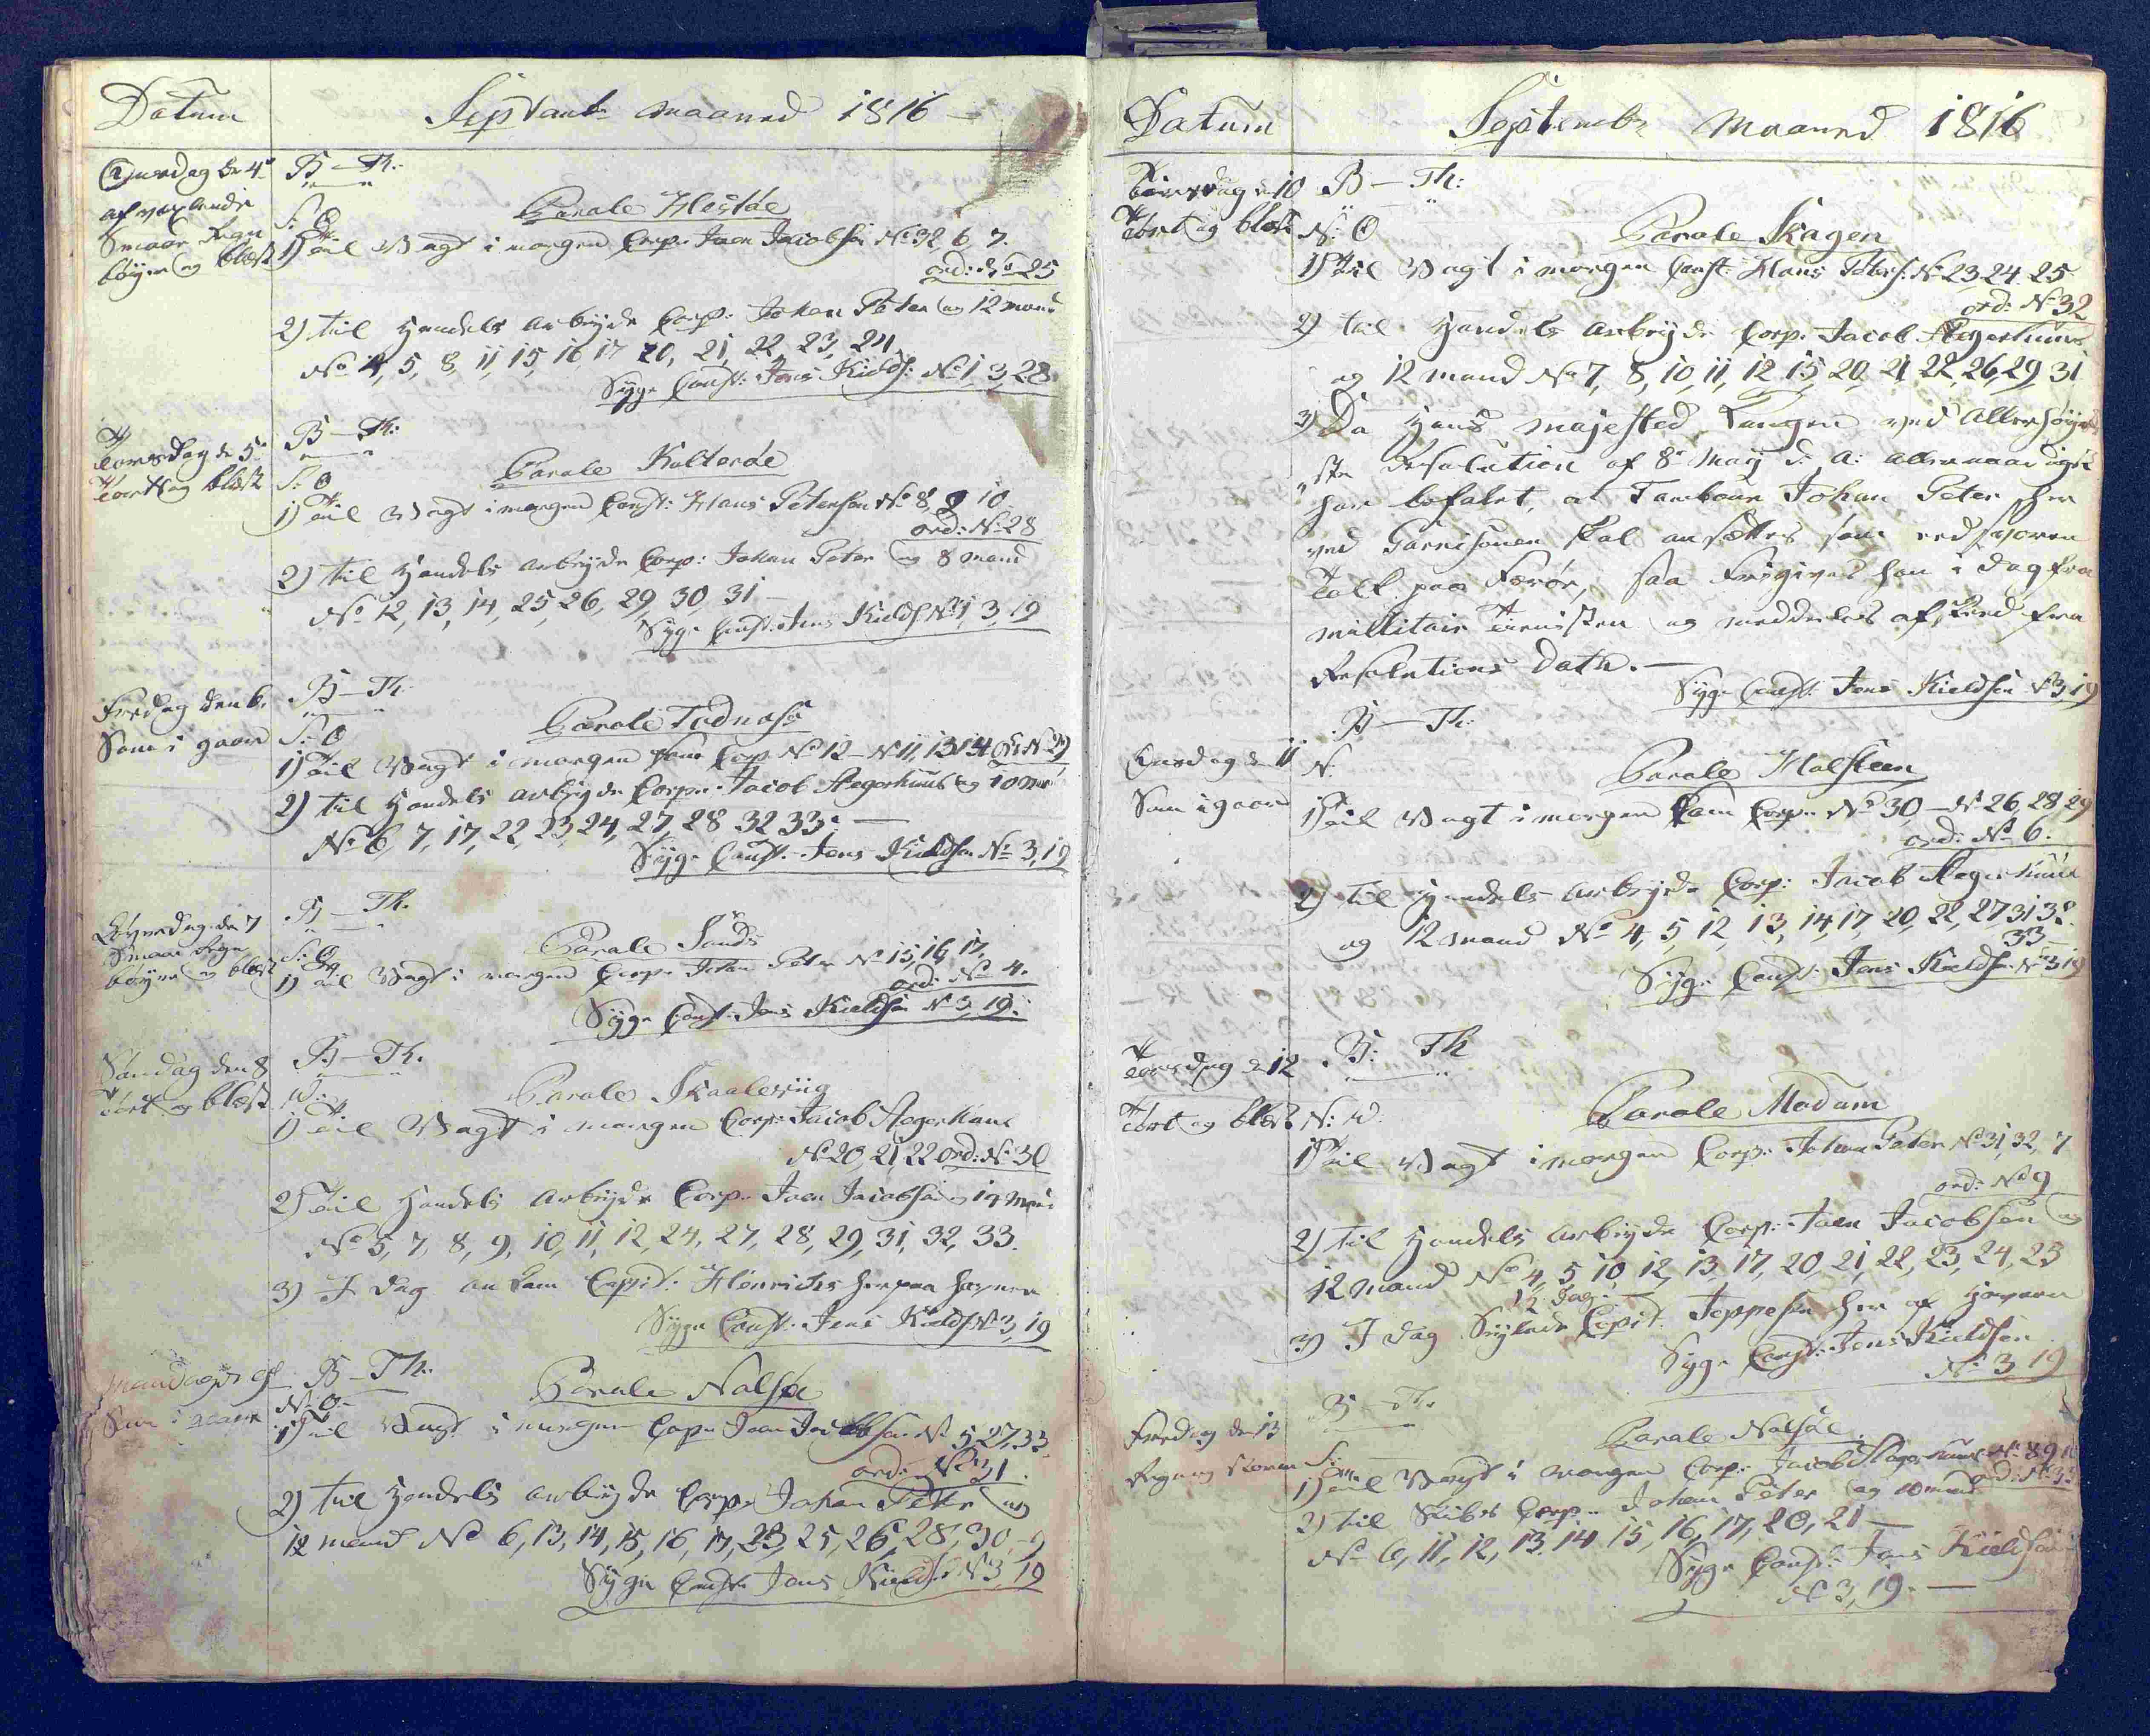 Datum
Septemb: maaned 1816 -
Onsdag d: 4de
afvexlende
Smaae Regn
bøyer og blæst
B - Th:
S: O
Parole Hestøe
1) Til Vagt i morgen Corp: Joen Jacobsen No 32, 6, 7.
ord: No 25
2) Til Handels arbeyde Corp: Johan Peter og 12 mand
No 4, 5, 8, 11, 15, 16, 17, 20, 21, 22, 23, 24.
Syge Const: Jens Kields: No 1, 3, 28.
Torsdag d: 5te
Tørt og blæst
B - Th:
S: O
Parole Kolterøe
1) Til Vagt i morgen Const: Hans Petersen No 8, 9, 10.
ord: No 28
2) Til Handels arbeyde Corp: Johan Peter og 8 mand
No 12, 13, 14, 25, 26, 29, 30, 31 -
Syge Const: Jens Kields No 1, 3, 19
Fredag den 6.
Som i gaar
B - Th:
S: O
Parole Todnæs
1) Til Vagt i morgen som Corp No 12 - No 11, 13, 14 Or: No 29
2) Til Handels arbeyde Corp: Jacob Aegerhuus og 10 md
No 6, 7, 17, 22, 23, 24, 27, 28, 32, 33: -
Syge Const: Jens Kieldsen No 3, 19
Løverdag de 7
Smaae Regn
bøyer og blæst
B - Th:
S: O
Parole Sands
1) Til Vagt i morgen Corp: Johan Peter No 15, 16, 17.
ord: No 4.
Syge Const: Jens Kieldsen No 3, 19.
Søndag den 8
Tørt og blæst
B - Th:
W:
Parole Skaalevüg
1) Til Vagt i morgen Corp: Jacob Aegerhuus
No 20, 21, 22 ord: No 30
2) Til Handels arbeyde Corp: Joen Jacobsen og 14 mand
No 5, 7, 8, 9, 10, 11, 12, 24, 27, 28, 29, 31, 32, 33.
3) I dag ankam Capit: Henrichs her paa havnen
Syge Const: Jens Kields No 3, 19
Mandag d: 9de
Som i gaar
B - Th:
N: O -
Parole Nolsøe
1) Til Vagt i morgen Corp: Joen Jacobsen No 5, 27, 33.
ord: No 31.
2) Til Handels arbeyde Corp: Johan Peter og
12 mand No 6, 13, 14, 15, 16, 17, 23, 25, 26, 28, 30, 9
Syge Const: Jens Kields: No 3, 19
Datum
Septembr Maaned 1816
Tiersdag d 10
Tørt og blæst
B - Th:
N: O
Parole Skagen
1) Til Vagt i morgen Const: Hans Peters: No 23, 24, 25.
ord: No 32
2) Til Handels arbeyde Corp: Jacob Aegerhuus
og 12 mand No 7, 8, 10, 11, 12, 15, 20, 21, 22, 26, 29, 31
3) Da Hans Majested Kongen ved Allerhøye
ste Resolution af 8de May d: A: allernaadigst
har befalet, at Tambour Johan Peter her
ved Garnisonen skal ansættes som eedsvoren
Tolk paa Færøe, saa frigives han i dag fra
millitair Tienesten og meddeles afskeed fra
Resolutions Dato. -
Syge Const: Jens Kieldsen No 3, 19
Onsdag d 11
Som i gaar
B - Th:
N:
Parole Holsteen
1) Til Vagt i morgen som Corp: No 30 - No 26, 28, 29
ord: No 6.
2) Til Handels arbeyde Corp: Jacob Aegerhuus
og 12 mand No 4, 5, 12, 13, 14, 17, 20, 22, 27, 31, 32.
33
Syge Const: Jens Kieldsen No 3, 19
Torsdag d 12
Tørt og blæst
B: Th
N: W.
Parole Modum
1) Til Vagt i morgen Corp: Johan Peter No 31, 32, 7
ord: No 9
2) Til Handels arbeyde Corp: Joen Jacobsen og
12 mand No 4, 5, 10, 12, 13, 17, 20, 21, 22, 23, 24, 25
1/2 Dag: -
3) I dag Seylede Capit. Jeppesen her af havnen
Syge Const: Jens Kieldsen
No 3, 19
Fredag den 13
Regn og Storm
B - Th:
S:
Parole Nolsöe
1) Til Vagt i morgen Corp: Jacob Aegerhuus No 8, 9, 10
ord: No 33
2) Til Skibet Corp: Johan Peter og 10 mand
No 6, 11, 12, 13, 14, 15, 16, 17, 20, 21 -
Syge Const: Jens Kieldsen
No 3, 19. -